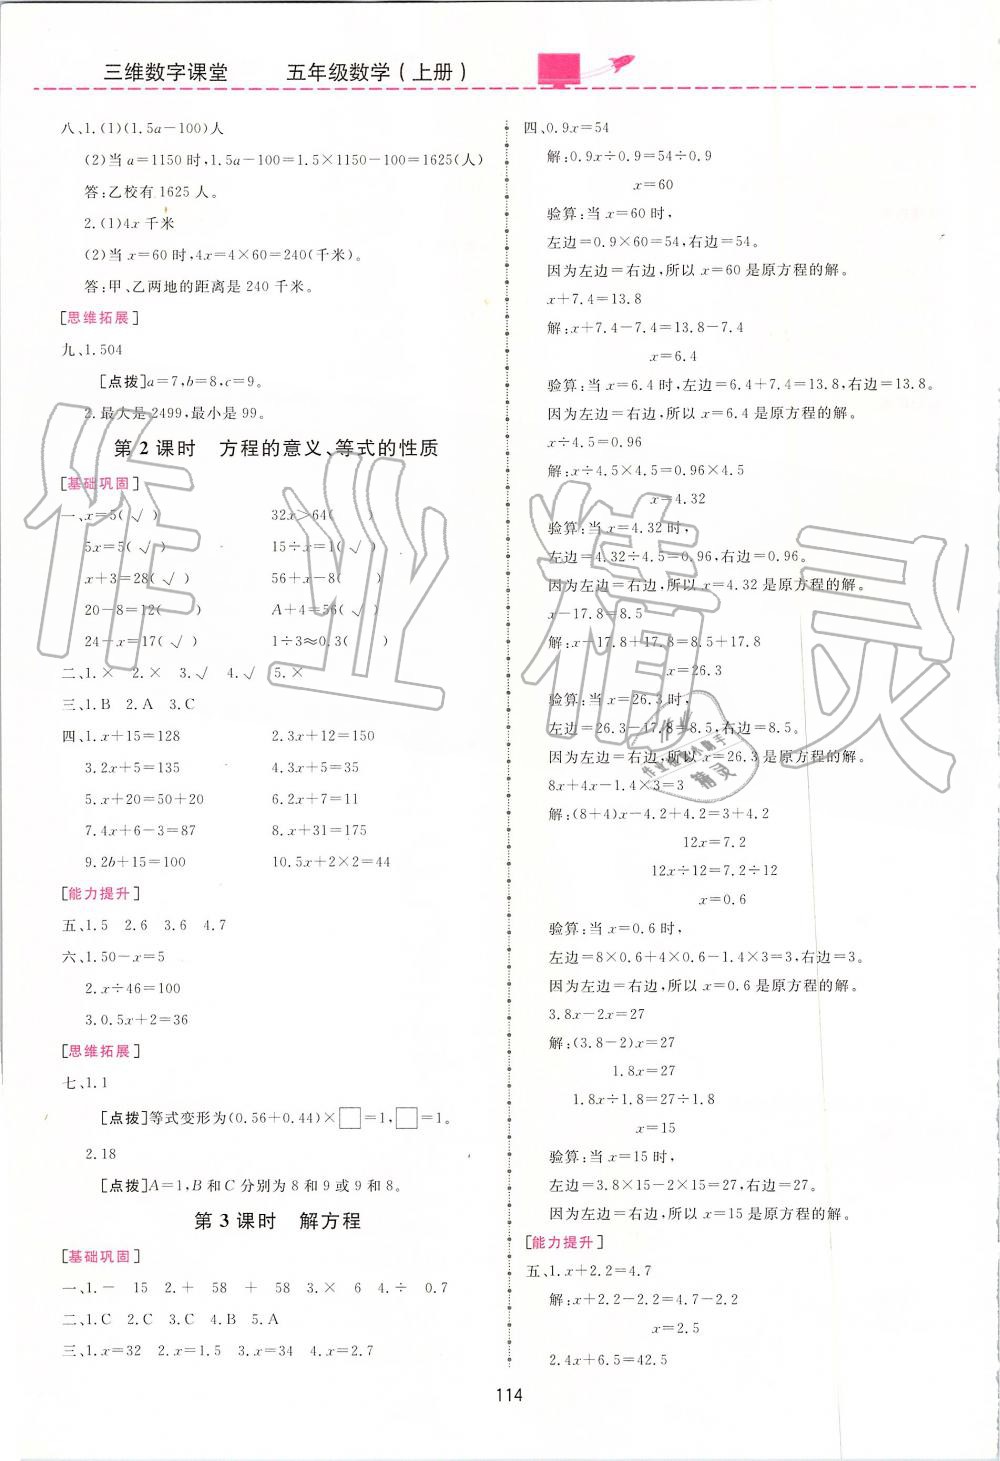 三维数字课堂 五年级数学(上册)
八、1.(1)(1.5a-100)人
(2)当a=1150时,1.5a-100=1.5×1150-100=1625(人)
答:乙校有1625人。
2.(1)4x千米
(2)当x=60时,4x=4×60=240(千米)。
答:甲、乙两地的距离是240千米。
[思维拓展]
九、1.504
[点拨]a=7,b=8,c=9。
2.最大是2499,最小是99。
第2课时 方程的意义、等式的性质
[基础巩固]
一、x=5(√) 32x>64( )
5x=5(√) 15÷x=1(√)
x+3=28(√) 56+x-8( )
20-8=12( ) A+4=56(√)
24-x=17(√) 1÷3≈0.3( )
二、1.× 2.× 3.√ 4.√ 5.×
三、1.B 2.A 3.C
四、1.x+15=128 2.3x+12=150
3.2x+5=135 4.3x+5=35
5.x+20=50+20 6.2x+7=11
7.4x+6-3=87 8.x+31=175
9.2b+15=100 10.5x+2×2=44
[能力提升]
五、1.5 2.6 3.6 4.7
六、1.50-x=5
2.x÷46=100
3.0.5x+2=36
[思维拓展]
七、1.1
[点拨]等式变形为(0.56+0.44)×□=1,□=1。
2.18
[点拨]A=1,B和C分别为8和9或9和8。
第3课时 解方程
[基础巩固]
一、1.- 15 2.+ 58 + 58 3.× 6 4.÷ 0.7
二、1.C 2.C 3.C 4.B 5.A
三、1.x=32 2.x=1.5 3.x=34 4.x=2.7
四、0.9x=54
解:0.9x÷0.9=54÷0.9
x=60
验算:当x=60时,
左边=0.9×60=54,右边=54。
因为左边=右边,所以x=60是原方程的解。
x+7.4=13.8
解:x+7.4-7.4=13.8-7.4
x=6.4
验算:当x=6.4时,左边=6.4+7.4=13.8,右边=13.8。
因为左边=右边,所以x=6.4是原方程的解。
x÷4.5=0.96
解:x÷4.5×4.5=0.96×4.5
x=4.32
验算:当x=4.32时,
左边=4.32÷4.5=0.96,右边=0.96。
因为左边=右边,所以x=4.32是原方程的解。
x-17.8=8.5
解:x-17.8+17.8=8.5+17.8
x=26.3
验算:当x=26.3时,
左边=26.3-17.8=8.5,右边=8.5。
因为左边=右边,所以x=26.3是原方程的解。
8x+4x-1.4×3=3
解:(8+4)x-4.2+4.2=3+4.2
12x=7.2
12x÷12=7.2÷12
x=0.6
验算:当x=0.6时,
左边=8×0.6+4×0.6-1.4×3=3,右边=3。
因为左边=右边,所以x=0.6是原方程的解。
3.8x-2x=27
解:(3.8-2)x=27
1.8x=27
1.8x÷1.8=27÷1.8
x=15
验算:当x=15时,
左边=3.8×15-2×15=27,右边=27。
因为左边=右边,所以x=15是原方程的解。
[能力提升]
五、1.x+2.2=4.7
解:x+2.2-2.2=4.7-2.2
x=2.5
2.4x+6.5=42.5
114
作业精灵